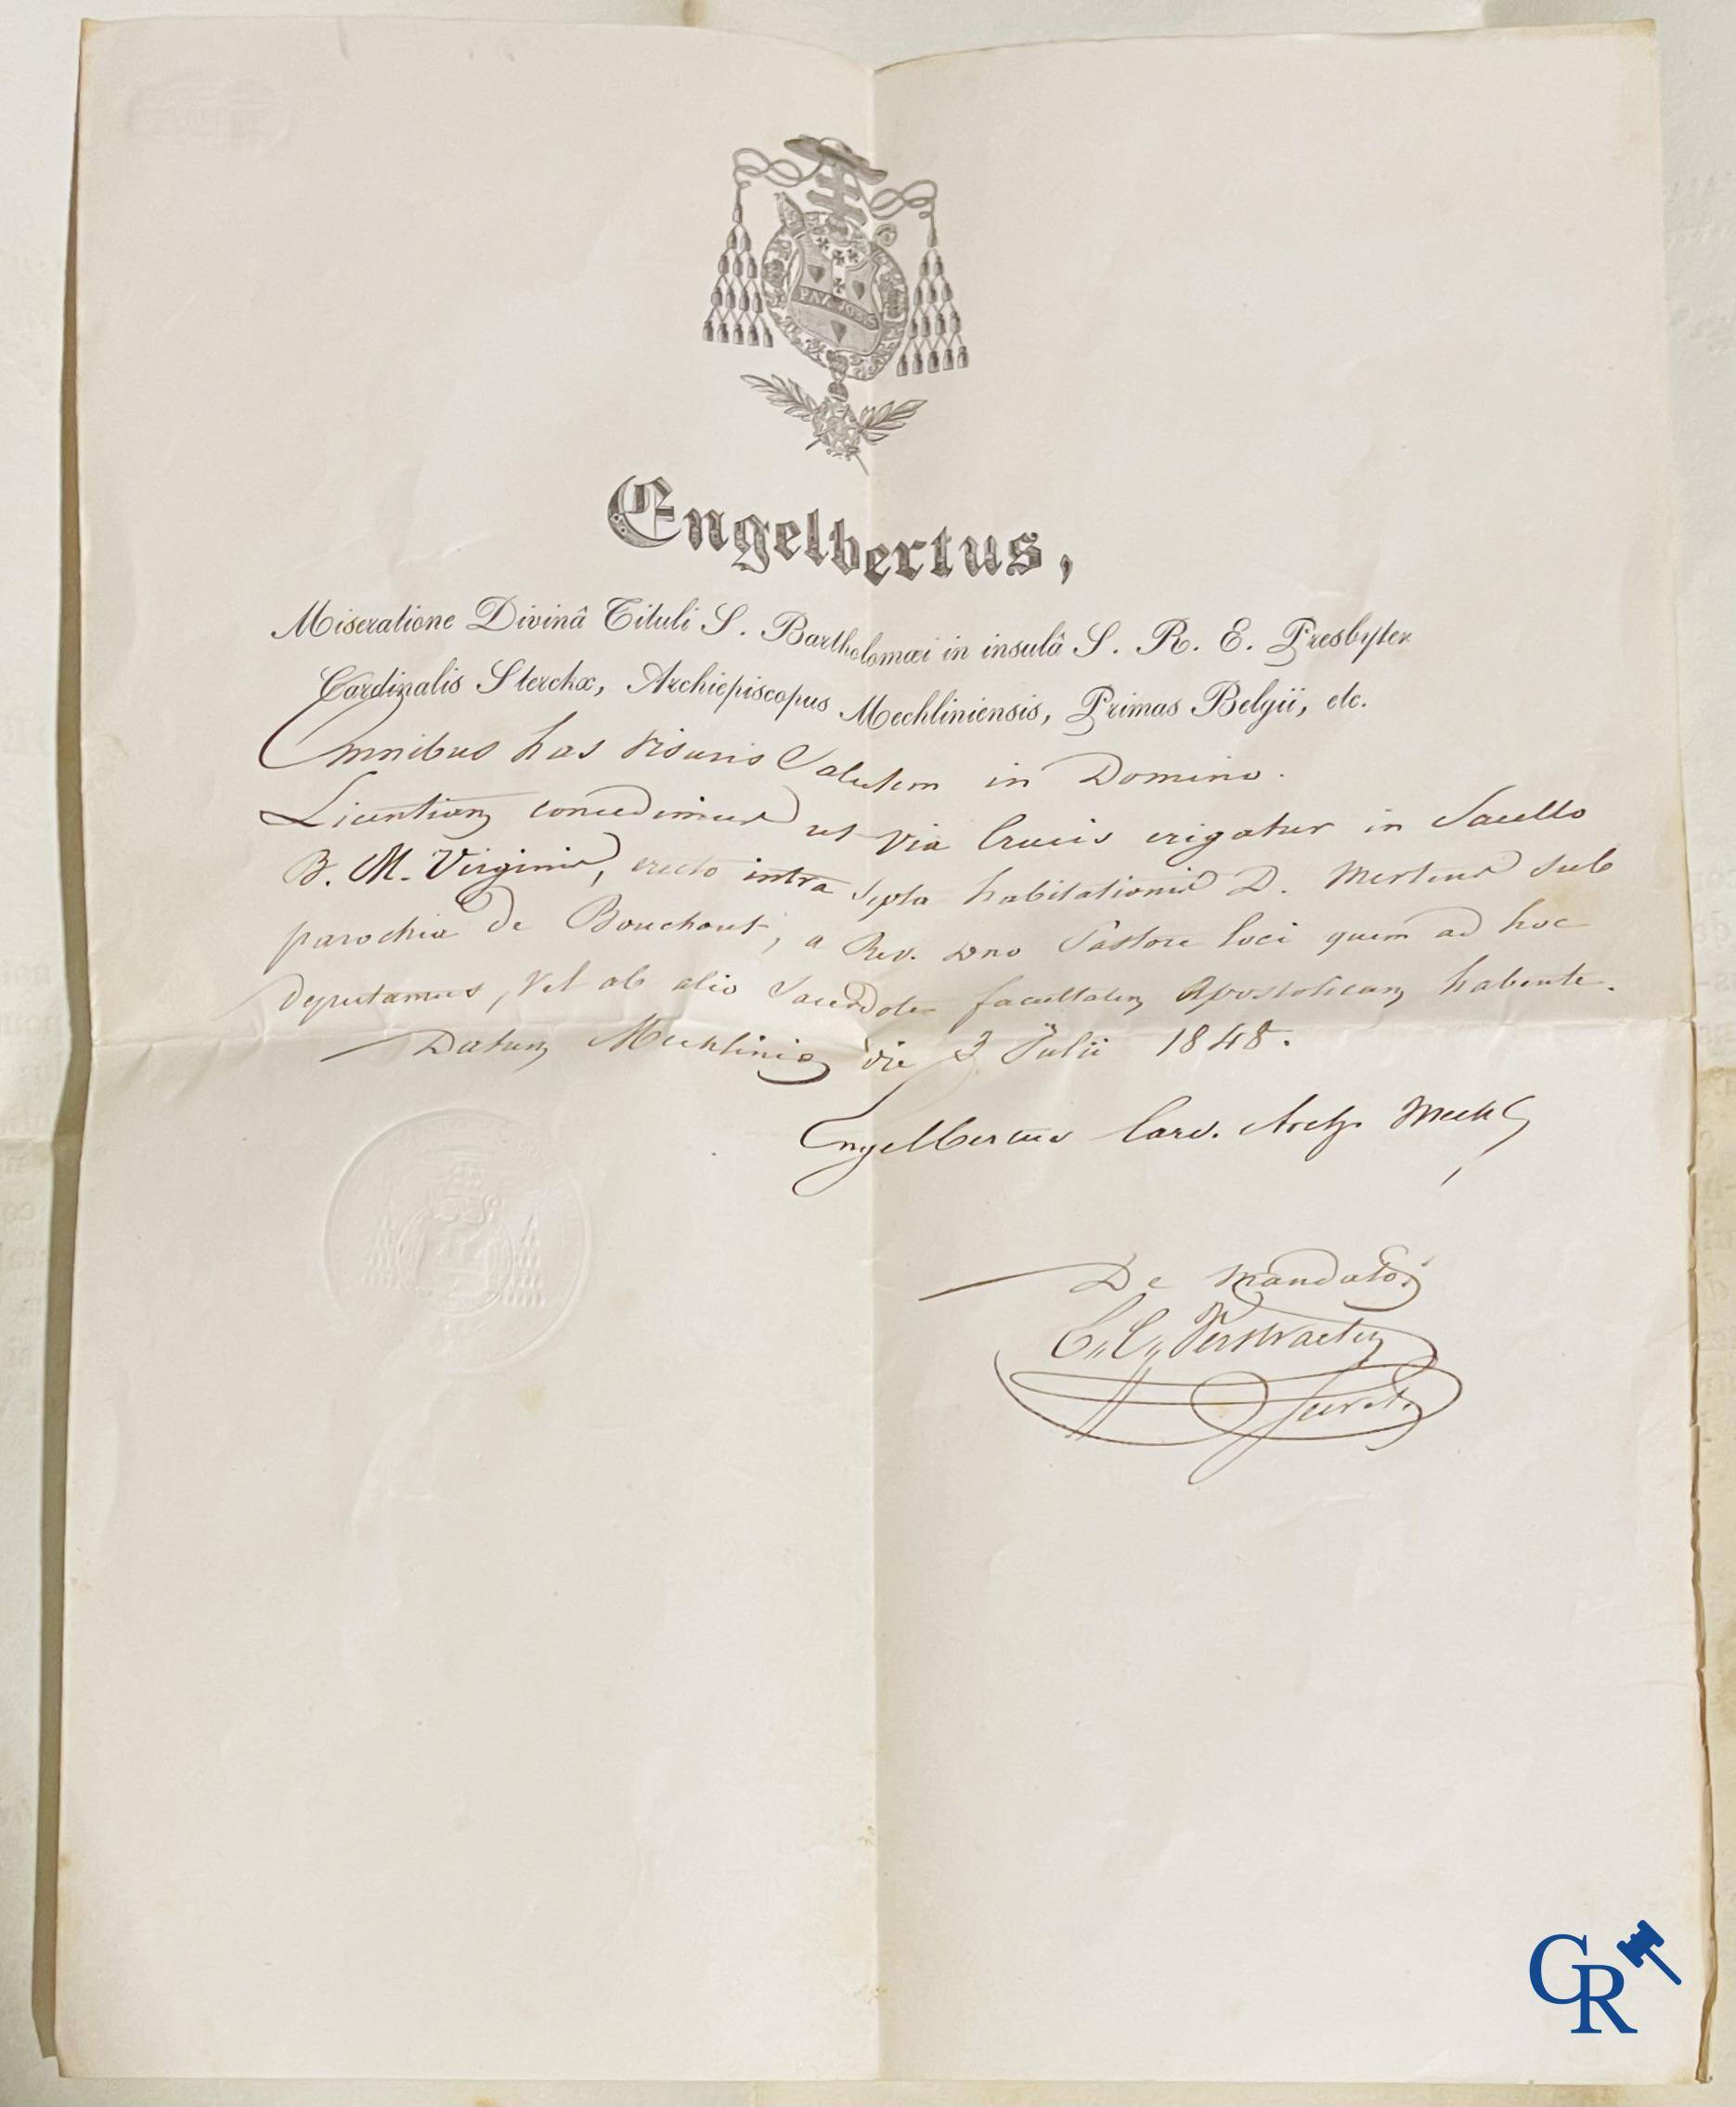 PAX VOBIS
Engelbertus,
Miseratione Divinâ Tituli S. Bartholomæi in insulâ S. R. E. Presbyter
Cardinalis Sterckx, Archiepiscopus Mechliniensis, Primas Belgii, etc.
Omnibus has visuris Salutem in Domino.
Licentiam concedimus ut Via Crucis erigatur in Sacello
B. M. Virginis, erecto intra septa habitationis D. Mertens sub
parochia de Bouchout, a Rev. Dno Pastore loci quem ad hoc
deputamus, vel ab alio Sacerdote facultatem Apostolicam habente.
Datum Mechliniæ die 3 Julii 1848.
Engelbertus Card. Archep. Mechl
De mandato
C. C. Verstraeten
Secret.
CR